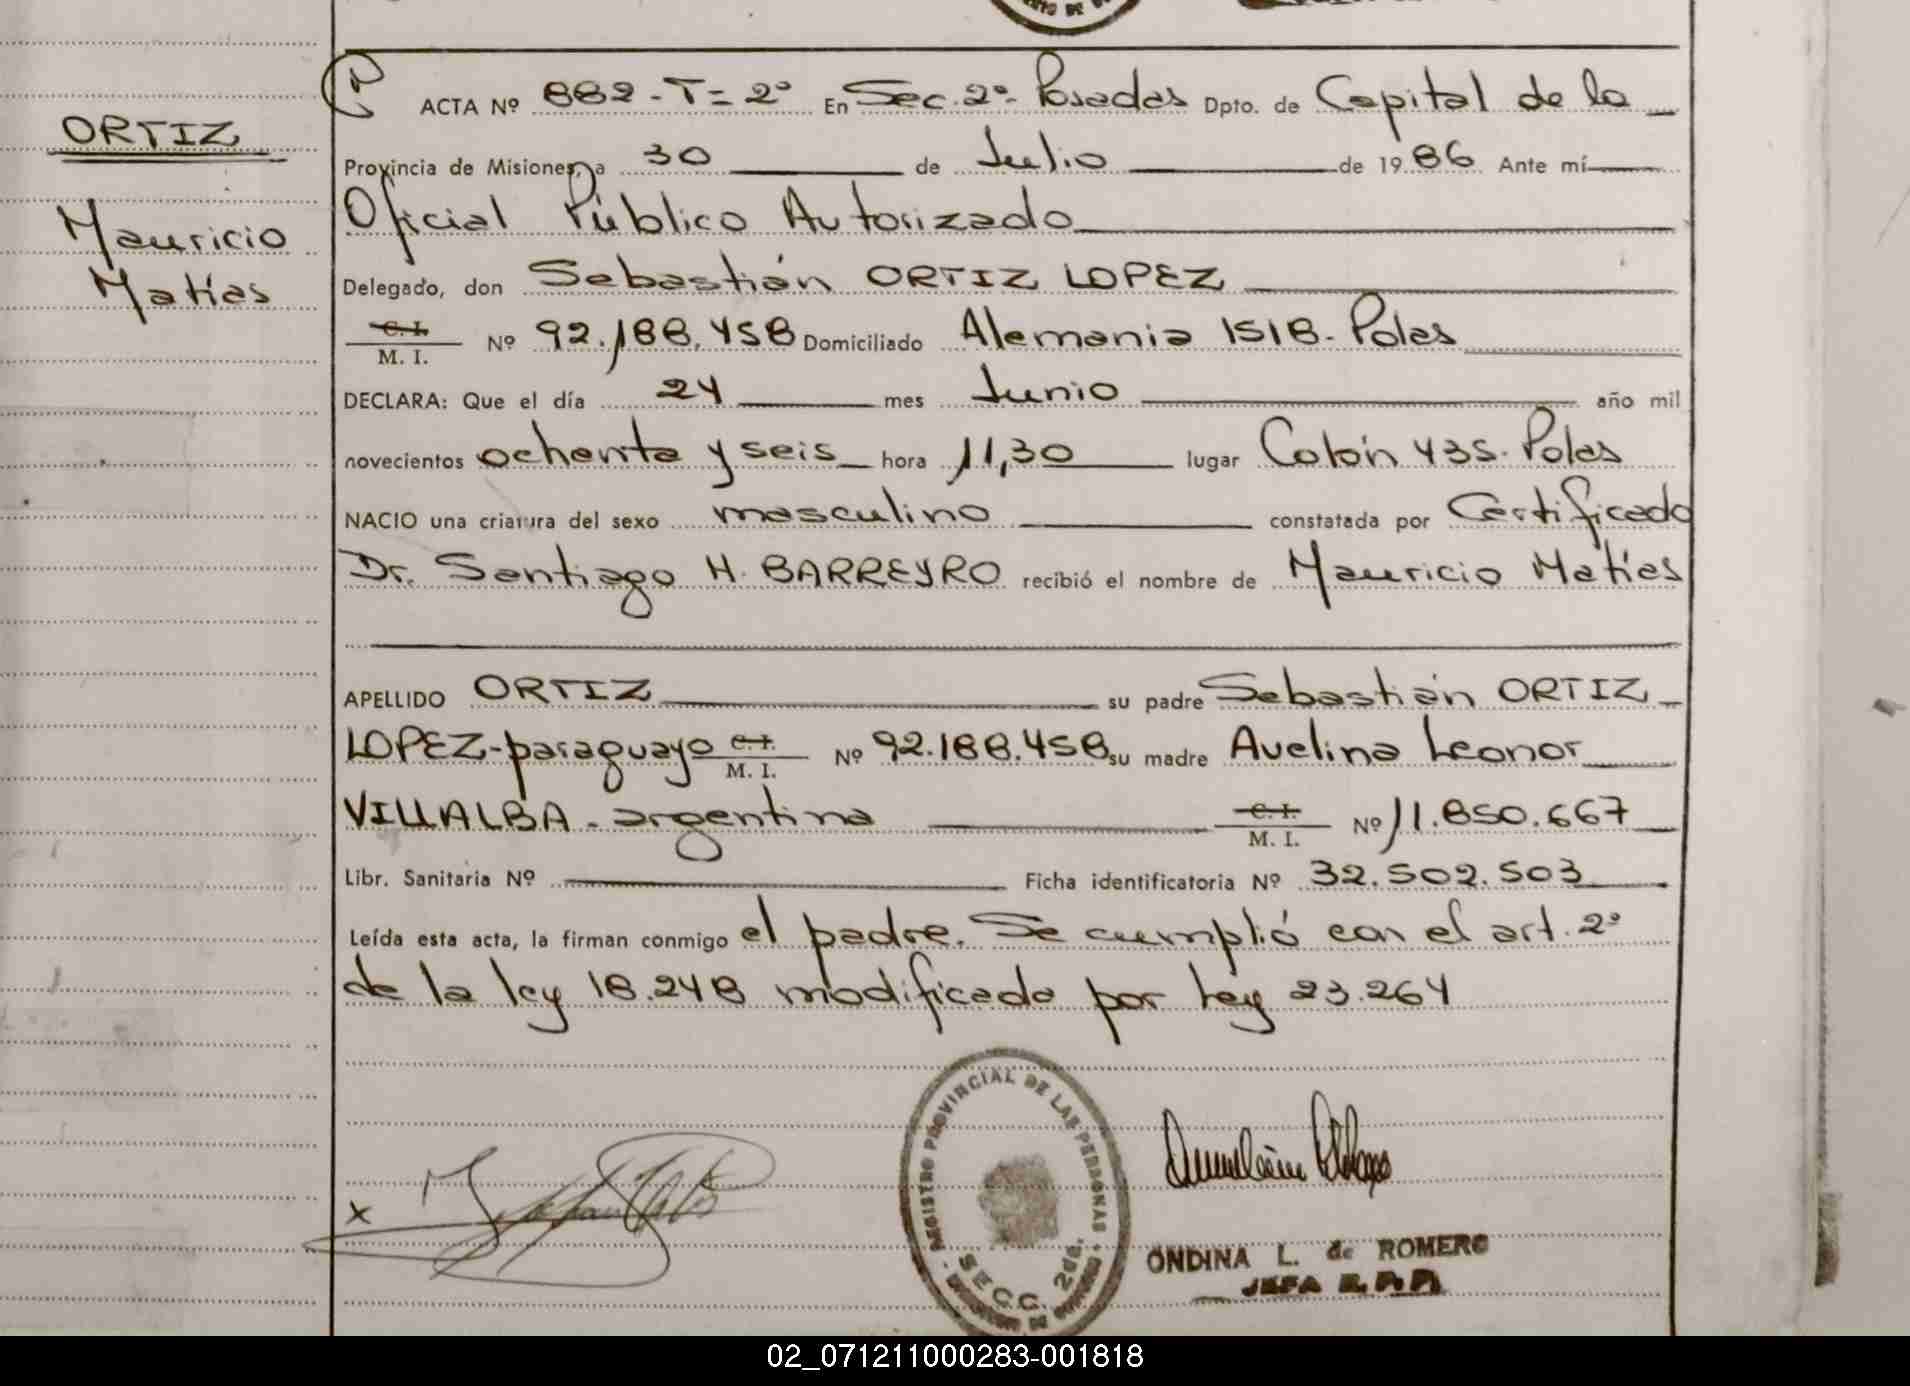 ACTA Nº 882-T=2º En Sec. 2º- Posadas Dpto. de Capital de la
ORTIZ
Provincia de Misiones, a 30 de Julio de 1986 Ante mí
Mauricio
Matías
Oficial Público Autorizado
Delegado, don Sebastián ORTIZ LOPEZ
C.I. M. I. Nº 92.188.458 Domiciliado Alemania 1518- Pdas
DECLARA: Que el día 24 mes Junio año mil
novecientos ochenta y seis hora 11,30 lugar Colón 435- Pdas
NACIO una criatura del sexo masculino constatada por Certificado
Dr. Santiago H. BARREYRO recibió el nombre de Mauricio Matías
APELLIDO ORTIZ su padre Sebastián ORTIZ
LOPEZ-paraguayo C.I. M. I. Nº 92.188.458 su madre Avelina Leonor
VILLALBA - argentina C.I. M. I. Nº 11.850.667
Libr. Sanitaria Nº Ficha identificatoria Nº 32.502.503
Leída esta acta, la firman conmigo el padre. Se cumplió con el art. 2º
de la ley 18.248 modificado por ley 23.264
REGISTRO PROVINCIAL DE LAS PERSONAS
SECC. 2da.
x
ONDINA L. de ROMERO
JEFA R.P.P.
02_071211000283-001818